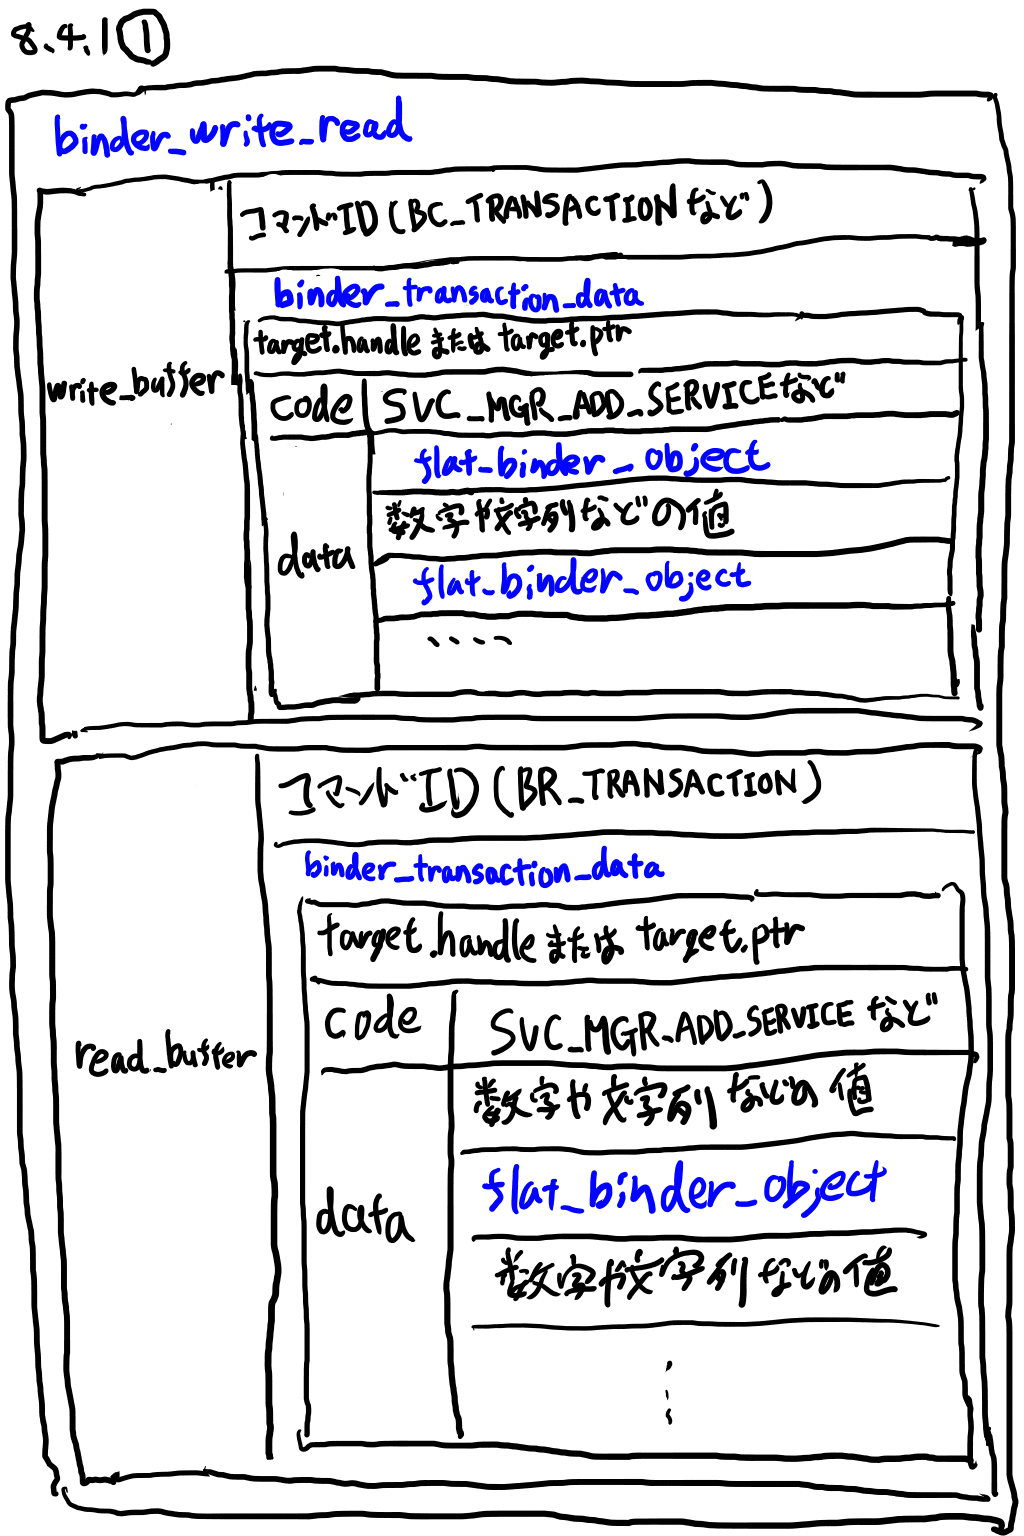 8.4.1 ①
binder_write_read
write_buffer
コマンドID (BC_TRANSACTIONなど)
binder_transaction_data
target.handle または target.ptr
code
SVC_MGR_ADD_SERVICEなど
data
flat_binder_object
数字や文字列などの値
flat_binder_object
、、、、
read_buffer
コマンドID (BR_TRANSACTION)
binder_transaction_data
target.handle または target.ptr
code
SVC_MGR_ADD_SERVICE など
data
数字や文字列などの値
flat_binder_object
数字や文字列などの値
⋮